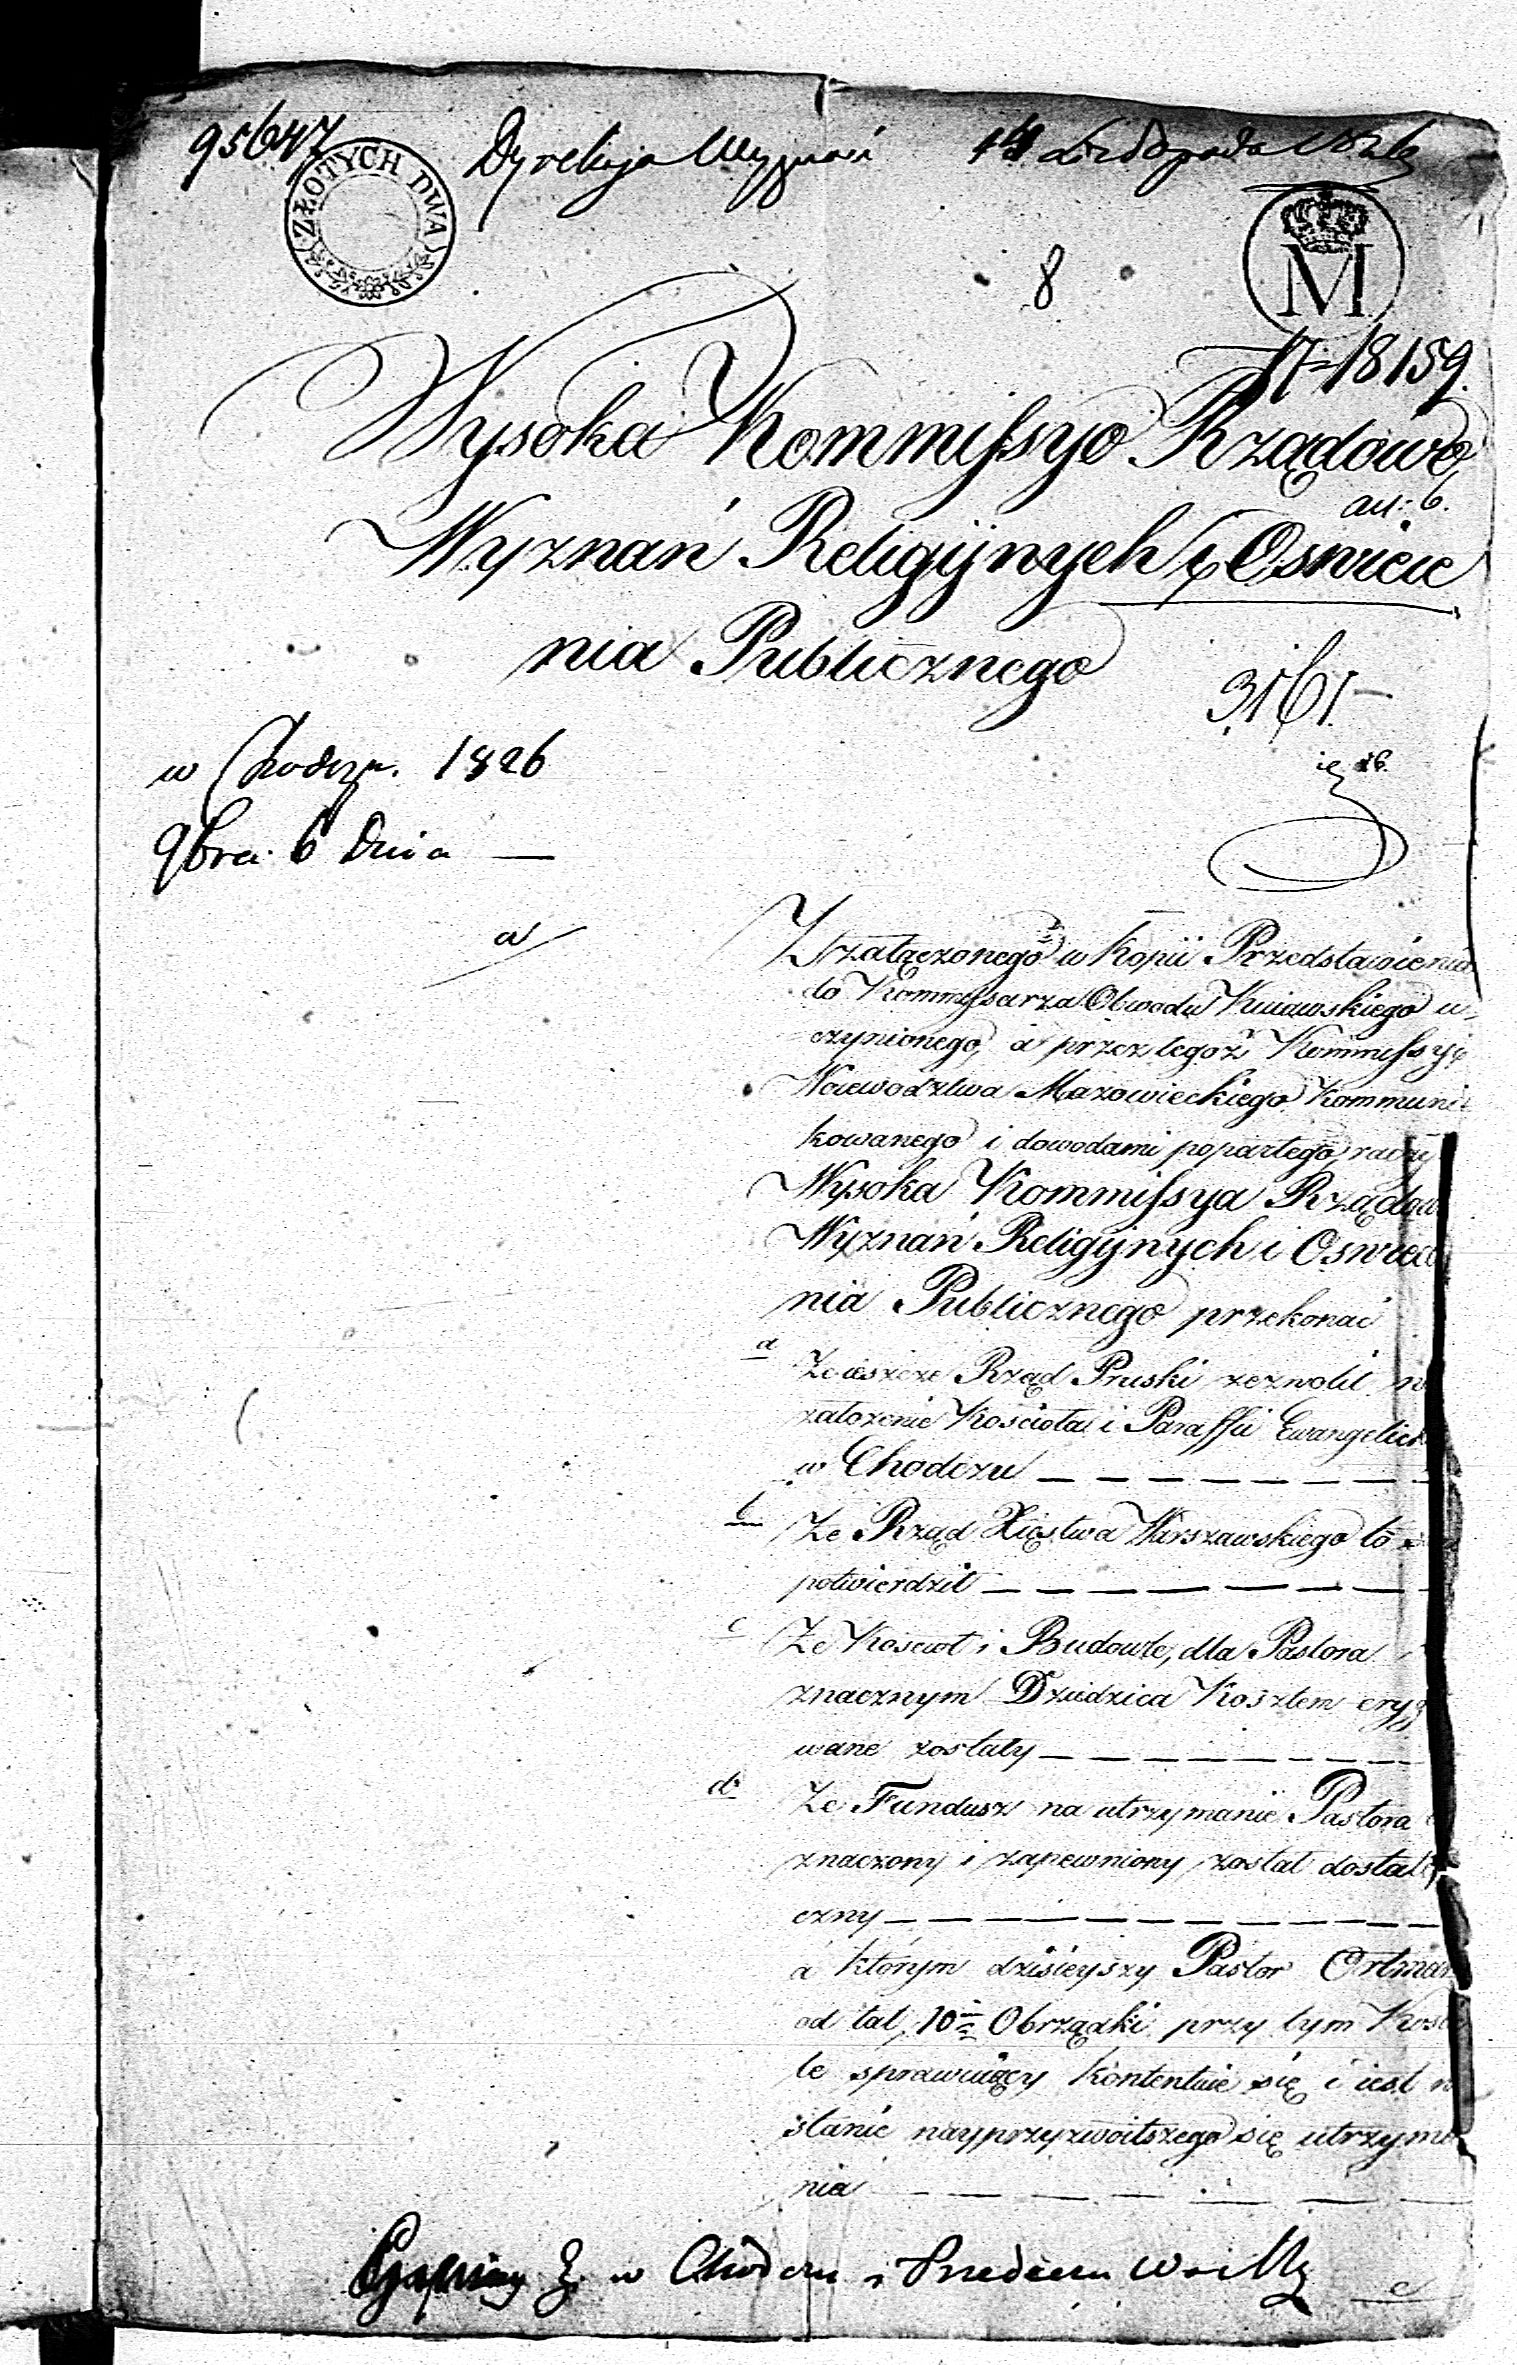 95647 Dyrekcya Wyznań 14 Listopada 1826
ZŁOTYCH DWA
8
M
17-18159.
Wysoka Kommissyo Rządowa
art: 6.
Wyznań Religijnych i Oswiece
nia Publicznego
3161
w Chodczu. 1826
9bra. 6 Dnia —
a
Z załączonego w kopii Przedstawienia
do Kommissarza Obwodu Kuiawskiego u-
czynionego, a przez tegoż Kommissyi
Woiewodztwa Mazowieckiego kommuni
kowanego i dowodami popartego, raczy
Wysoka Kommissya Rządow
Wyznań Religijnych i Oswiece
nia Publicznego przekonać
a Ze ieszcze Rząd Pruski zezwolił n
założenie Kościoła i Paraffii Ewangelick
w Chodczu — — — — — — — —
b Ze Rząd Xięstwa Warszawskiego to
potwierdził — — — — — — — —
c Ze Kościoł i Budowle, dla Pastora
znacznym Dziedzica Kosztem eryg
wane zostały — — — — — — — —
d Ze Fundusz na utrzymanie Pastora
znaczony i zapewniony został dostat
czny — — — — — — — — — — —
a którym dzisieyszy Pastor Ortman
od lat 10 Obrządki przy tym Kości
le sprawuiący kontentuie się i iest w
stanie nayprzyzwoitszego się utrzyma
nia — — — — — — — —
w Chodczu